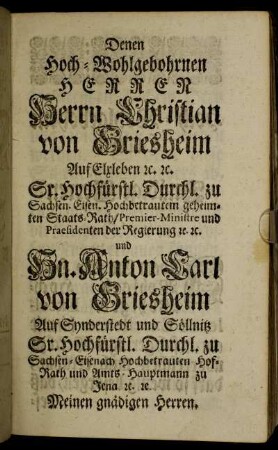 Denen
Hoch-Wohlgebohrnen
HERREN
Herrn Christian
von Griesheim
Auf Elxleben ꝛc. ꝛc.
Sr. Hochfürstl. Durchl. zu
Sachsen-Eisen. Hochbetrautem geheim-
ten Staats-Rath/Premier-Ministre und
Praesidenten der Regierung ꝛc. ꝛc.
und
Hn. Anton Carl
von Griesheim
Auf Synderstedt und Söllnitz
Sr. Hochfürstl. Durchl. zu
Sachsen-Eisenach Hochbetrauten Hof-
Rath und Amts-Hauptmann zu
Jena ꝛc. ꝛc.
Meinen gnädigen Herren.